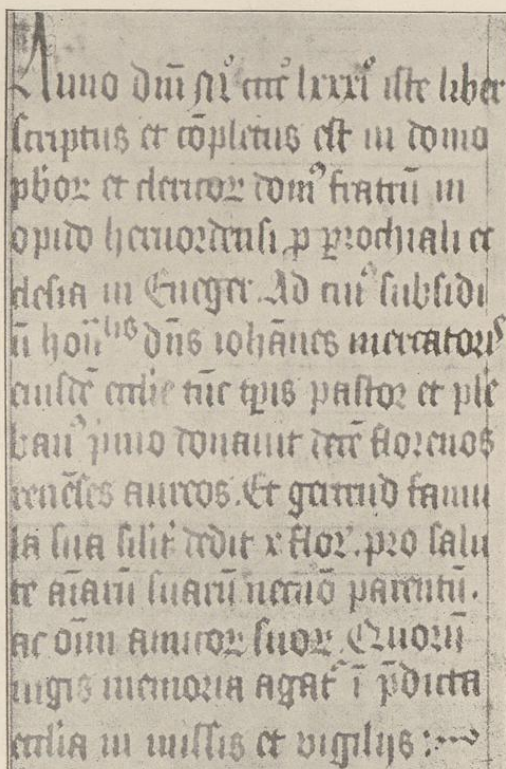 Anno dm̄ Mº ccccº lxxxº iste liber
scriptus et cōpletus est in domo
pb̄oꝝ et clericoꝝ domꝰ fratrū in
opido heruordensi ꝓ ꝑrochiali ec
clesia in Eneger. Ad cuiꝰ subsidi
ū hon̄lis dn̄s iohānes mercatoris
eiusdē ecclīe tūc tp̄is pastor et ple
banꝰ pͥmo donauit decē florenos
renēses aureos. Et gertrud famu
la sua silit̄ dedit x flor̄. pro salu
te aīarū suarū necnō parentū.
ac oīm amicoꝝ suoꝝ. Quorū
iugis memoria agat᷑ ī p̄dicta
ecclīa in missis et vigilijs :~